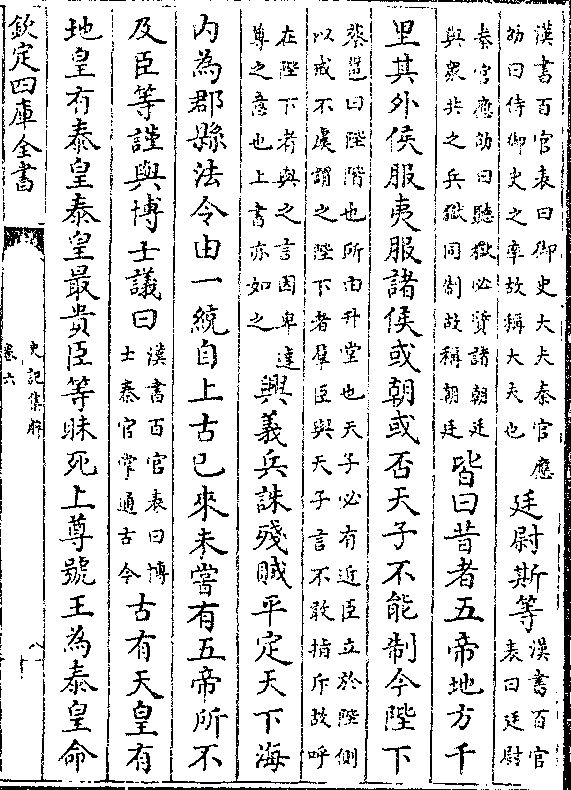 漢書百官表曰御史大夫秦官應
劭曰侍御史之率故稱大夫也
廷尉斯等
漢書百官
表曰廷尉
秦官應劭曰聽獄必質諸朝廷
與衆共之兵獄同制故稱廷尉
皆曰昔者五帝地方千
里其外侯服夷服諸侯或朝或否天子不能制今陛下
蔡邕曰陛階也所由升堂也天子必有近臣立於陛側
以戒不虞謂之陛下者羣臣與天子言不敢指斥故呼
在陛下者與之言因卑達
尊之意也上書亦如之
興義兵誅殘賊平定天下海
内為郡縣法令由一統自上古已來未嘗有五帝所不
及臣等謹與博士議曰
漢書百官表曰博
士秦官掌通古今
古有天皇有
地皇有泰皇泰皇最貴臣等昧死上尊號王為泰皇命
欽定四庫全書
史記集解
卷六
八